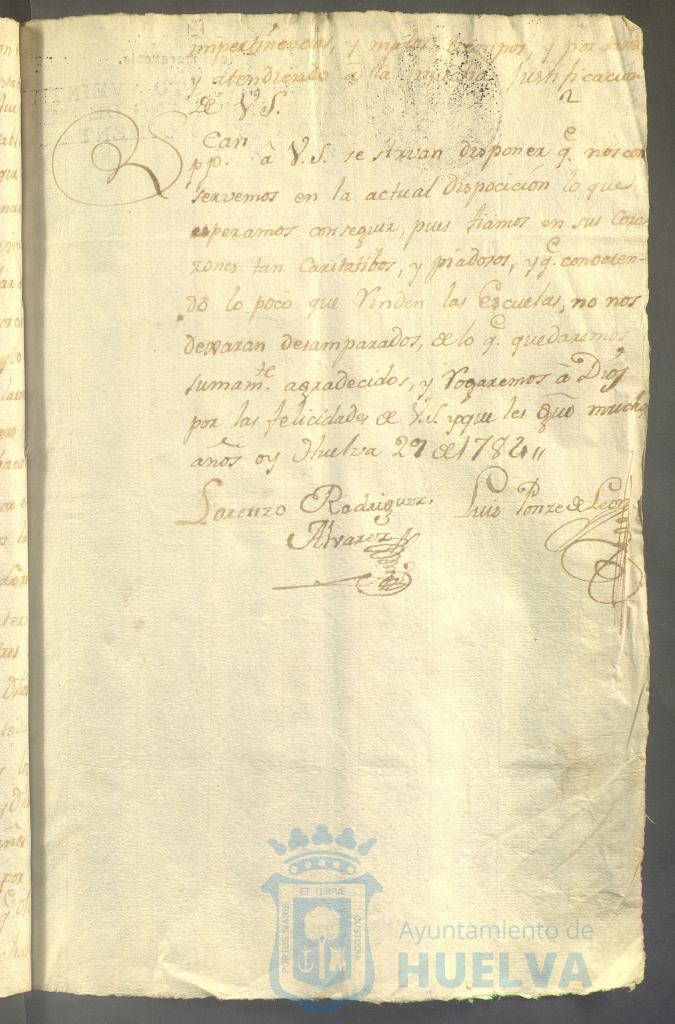 impertinencias, y malos tiempos, y por tanto
y atendiendo a la mucha Justificacion
de V.S.
2
Can
pp. à V.S. se sirvan disponer q.e nos con
servemos en la actual disposición lo que
esperamos conseguir, pues fiamos en sus Cora
zones tan Caritatibos, y piadosos, y q.e conocien-
do lo poco que Rinden las Escuelas, no nos
dexaran desamparados, de lo q.e quedaremos
sumam.te agradecidos, y Rogaremos à Dios
por las felicidades de V.S. y que les gue much.s
años oy Huelva 29 de 1784
Lorenzo Rodriguez. Luis Ponze de Leon
Alvarez
ET TERRÆ
PORTUS MARIS
CUSTODIA
Ayuntamiento de
HUELVA